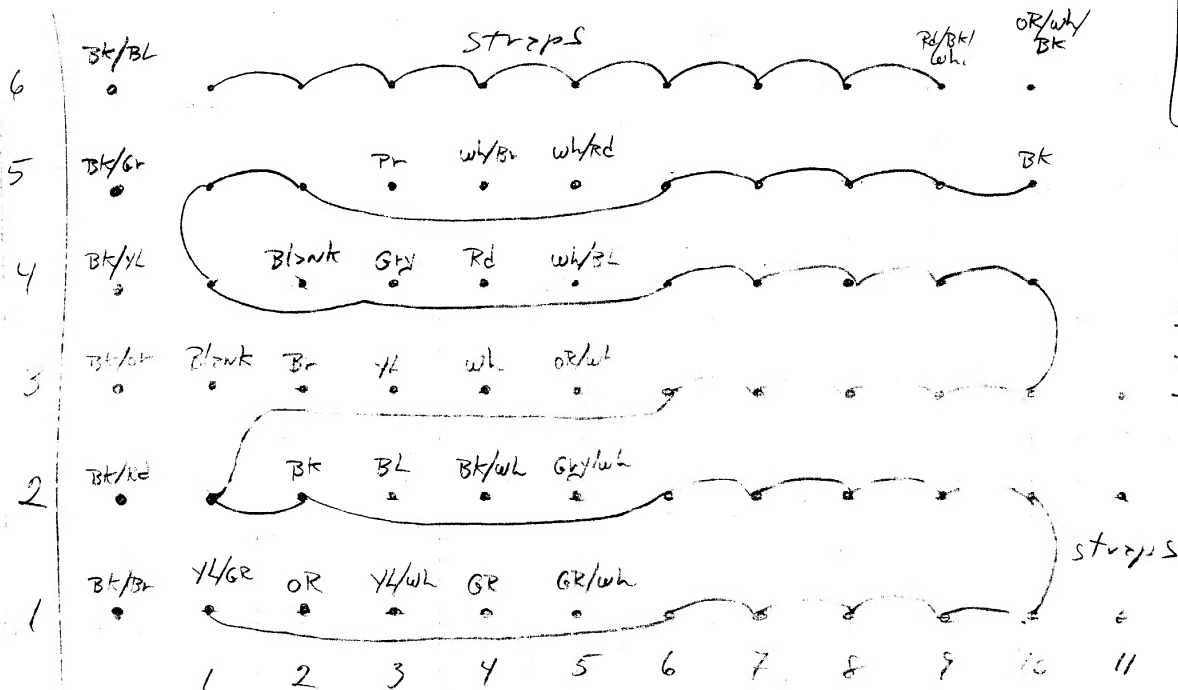 Bk/BL straps Rd/Bk/ Wh. OR/Wh/ BK
6
5 Bk/Gr Pr Wh/Br Wh/Rd BK
4 Bk/YL Blank Gry Rd Wh/BL
3 Bk/OR Blank Br YL Wh OR/Wh
2 Bk/Rd BK BL Bk/WL Gry/Wh
straps
1 Bk/Br YL/GR OR YL/Wh GR GR/Wh
1 2 3 4 5 6 7 8 9 10 11